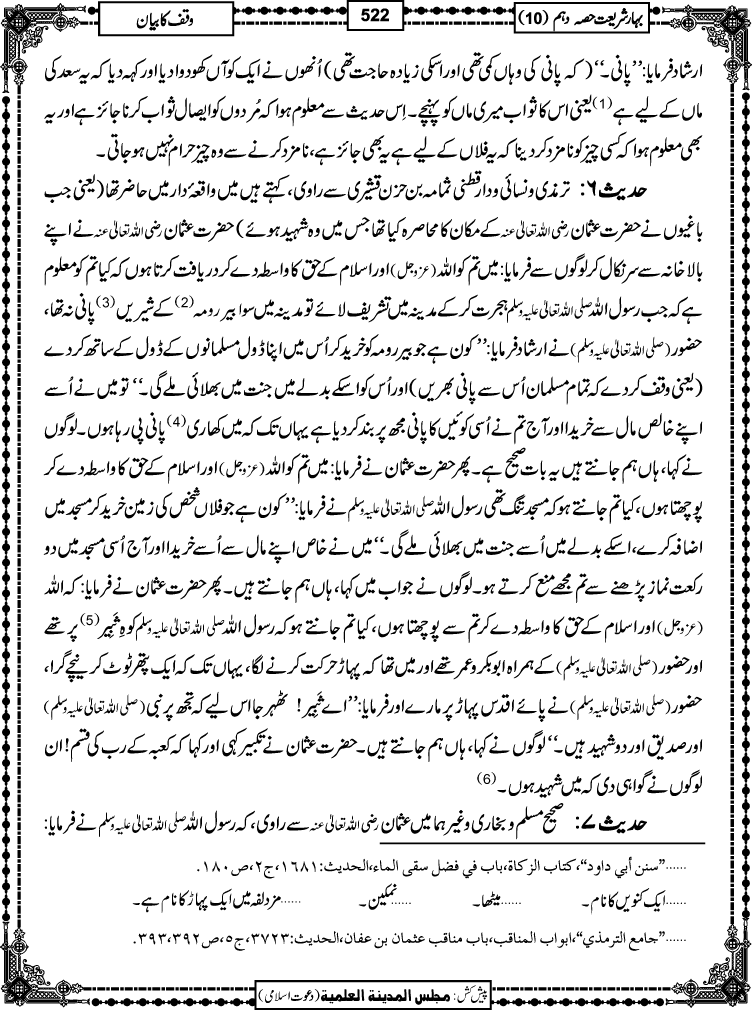 بہارِ شریعت حصہ دہم (10)
522
وقف کا بیان
ارشاد فرمایا: ’’پانی۔‘‘ (کہ پانی کی وہاں کمی تھی اور اسکی زیادہ حاجت تھی) اُنھوں نے ایک کوآں کھودوا دیا اور کہہ دیا کہ یہ سعد کی
ماں کے لیے ہے(1) یعنی اس کا ثواب میری ماں کو پہنچے۔ اِس حدیث سے معلوم ہوا کہ مُردوں کو ایصال ثواب کرنا جائز ہے اور یہ
بھی معلوم ہوا کہ کسی چیز کو نامزد کر دینا کہ یہ فلاں کے لیے ہے یہ بھی جائز ہے، نامزد کرنے سے وہ چیز حرام نہیں ہو جاتی۔
حدیث ۶: ترمذی و نسائی و دارقطنی ثمامہ بن حزن قشیری سے راوی، کہتے ہیں میں واقعۂ دار میں حاضر تھا (یعنی جب
باغیوں نے حضرت عثمان رضی اللہ تعالیٰ عنہ کے مکان کا محاصرہ کیا تھا جس میں وہ شہید ہوئے) حضرت عثمان رضی اللہ تعالیٰ عنہ نے اپنے
بالا خانہ سے سر نکال کر لوگوں سے فرمایا: میں تم کو اللہ (عزوجل) اور اسلام کے حق کا واسطہ دے کر دریافت کرتا ہوں کہ کیا تم کو معلوم
ہے کہ جب رسول اللہ صلی اللہ تعالیٰ علیہ وسلم ہجرت کر کے مدینہ میں تشریف لائے تو مدینہ میں سوا بیر رومہ(2) کے شیریں(3) پانی نہ تھا،
حضور (صلی اللہ تعالیٰ علیہ وسلم) نے ارشاد فرمایا: ’’کون ہے جو بیر رومہ کو خرید کر اُس میں اپنا ڈول مسلمانوں کے ڈول کے ساتھ کر دے
(یعنی وقف کر دے کہ تمام مسلمان اُس سے پانی بھریں) اور اُس کو اسکے بدلے میں جنت میں بھلائی ملے گی۔‘‘ تو میں نے اُسے
اپنے خالص مال سے خریدا اور آج تم نے اُسی کوئیں کا پانی مجھ پر بند کر دیا ہے یہاں تک کہ میں کھاری(4) پانی پی رہا ہوں۔ لوگوں
نے کہا، ہاں ہم جانتے ہیں یہ بات صحیح ہے۔ پھر حضرت عثمان نے فرمایا: میں تم کو اللہ (عزوجل) اور اسلام کے حق کا واسطہ دے کر
پوچھتا ہوں، کیا تم جانتے ہو کہ مسجد تنگ تھی رسول اللہ صلی اللہ تعالیٰ علیہ وسلم نے فرمایا: ’’کون ہے جو فلاں شخص کی زمین خرید کر مسجد میں
اضافہ کرے، اسکے بدلے میں اُسے جنت میں بھلائی ملے گی۔‘‘ میں نے خاص اپنے مال سے اُسے خریدا اور آج اُسی مسجد میں دو
رکعت نماز پڑھنے سے تم مجھے منع کرتے ہو۔ لوگوں نے جواب میں کہا، ہاں ہم جانتے ہیں۔ پھر حضرت عثمان نے فرمایا: کہ اللہ
(عزوجل) اور اسلام کے حق کا واسطہ دے کر تم سے پوچھتا ہوں، کیا تم جانتے ہو کہ رسول اللہ صلی اللہ تعالیٰ علیہ وسلم کوہِ ثَبِیر(5) پر تھے
اور حضور (صلی اللہ تعالیٰ علیہ وسلم) کے ہمراہ ابوبکر و عمر تھے اور میں تھا کہ پہاڑ حرکت کرنے لگا، یہاں تک کہ ایک پتھر ٹوٹ کر نیچے گرا،
حضور (صلی اللہ تعالیٰ علیہ وسلم) نے پائے اقدس پہاڑ پر مارے اور فرمایا: ’’اے ثَبِیر! ٹھہر جا اس لیے کہ تجھ پر نبی (صلی اللہ تعالیٰ علیہ وسلم)
اور صدیق اور دو شہید ہیں۔‘‘ لوگوں نے کہا، ہاں ہم جانتے ہیں۔ حضرت عثمان نے تکبیر کہی اور کہا کہ کعبہ کے رب کی قسم! ان
لوگوں نے گواہی دی کہ میں شہید ہوں۔(6)
حدیث ۷: صحیح مسلم و بخاری وغیرہما میں عثمان رضی اللہ تعالیٰ عنہ سے راوی، کہ رسول اللہ صلی اللہ تعالیٰ علیہ وسلم نے فرمایا:
......’’سنن أبي داود‘‘، کتاب الزکاۃ، باب في فضل سقی الماء، الحدیث:۱۶۸۱، ج۲، ص۱۸۰.
......ایک کنویں کا نام۔ ......میٹھا۔ ......نمکین۔ ......مزدلفہ میں ایک پہاڑ کا نام ہے۔
......’’جامع الترمذي‘‘، ابواب المناقب، باب مناقب عثمان بن عفان، الحدیث:۳۷۲۳، ج۵، ص۳۹۳،۳۹۲.
پیش کش: مجلس المدینۃ العلمیۃ (دعوت اسلامی)